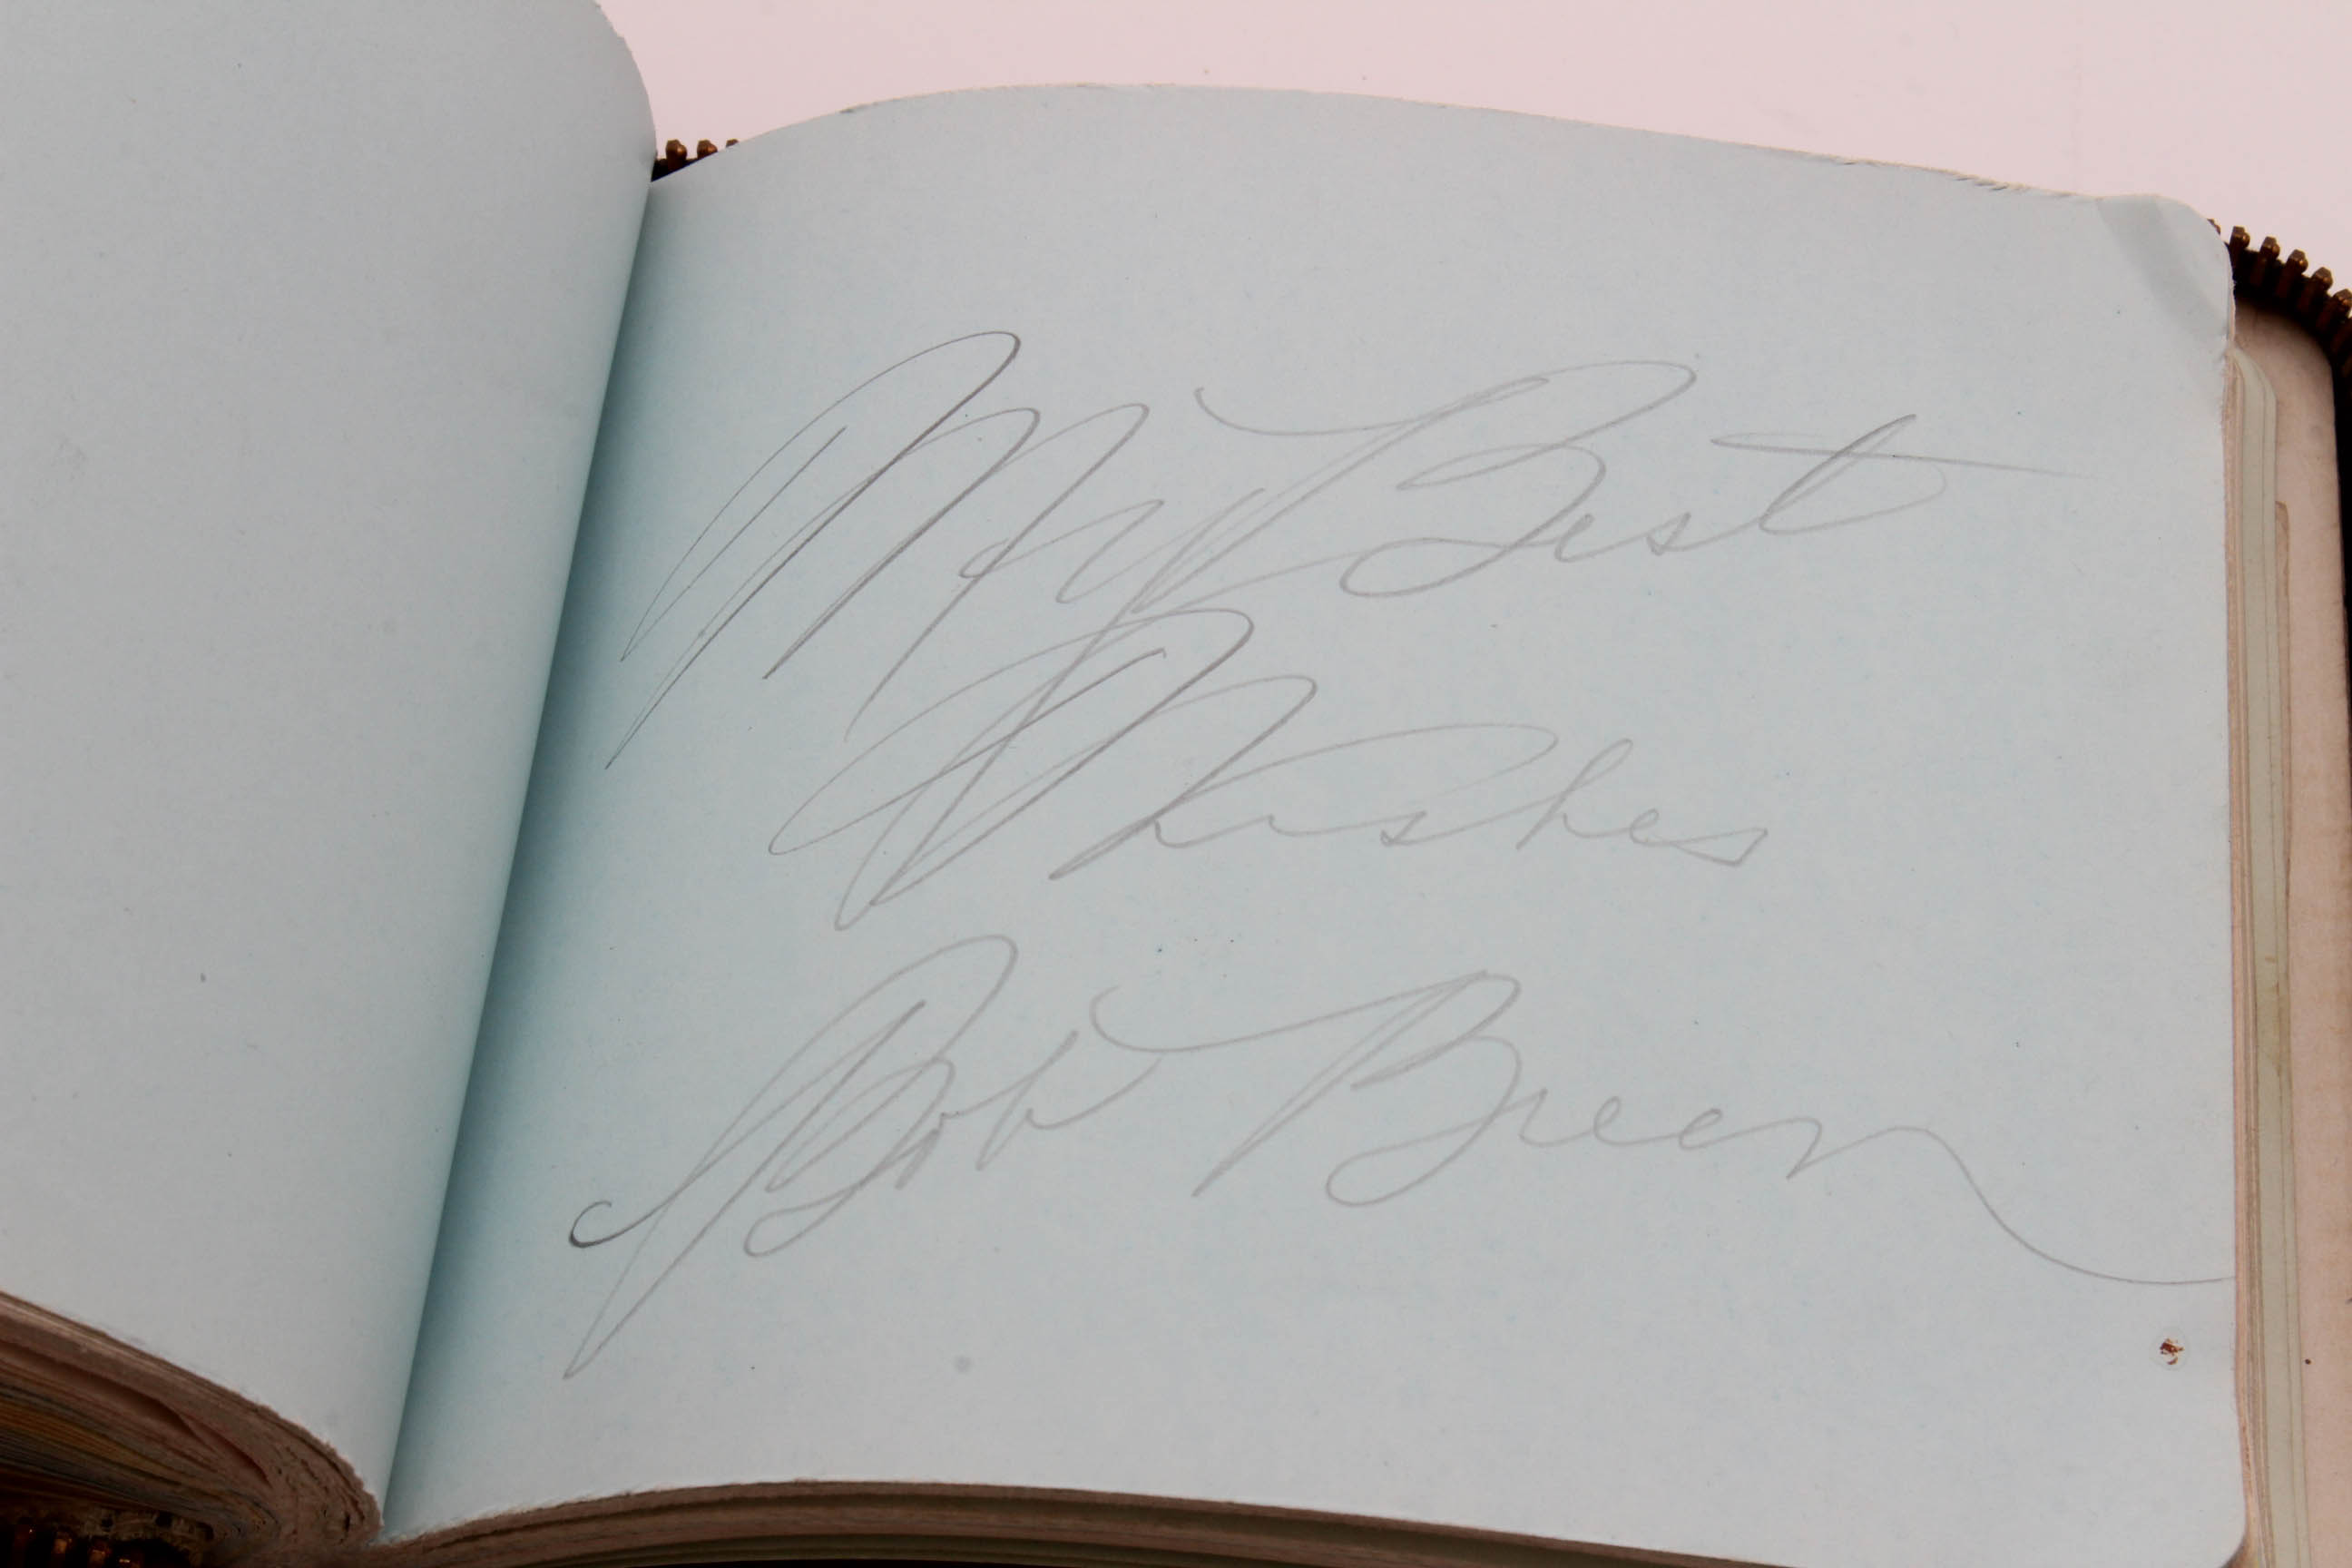 My Best
Wishes
Bob Breen